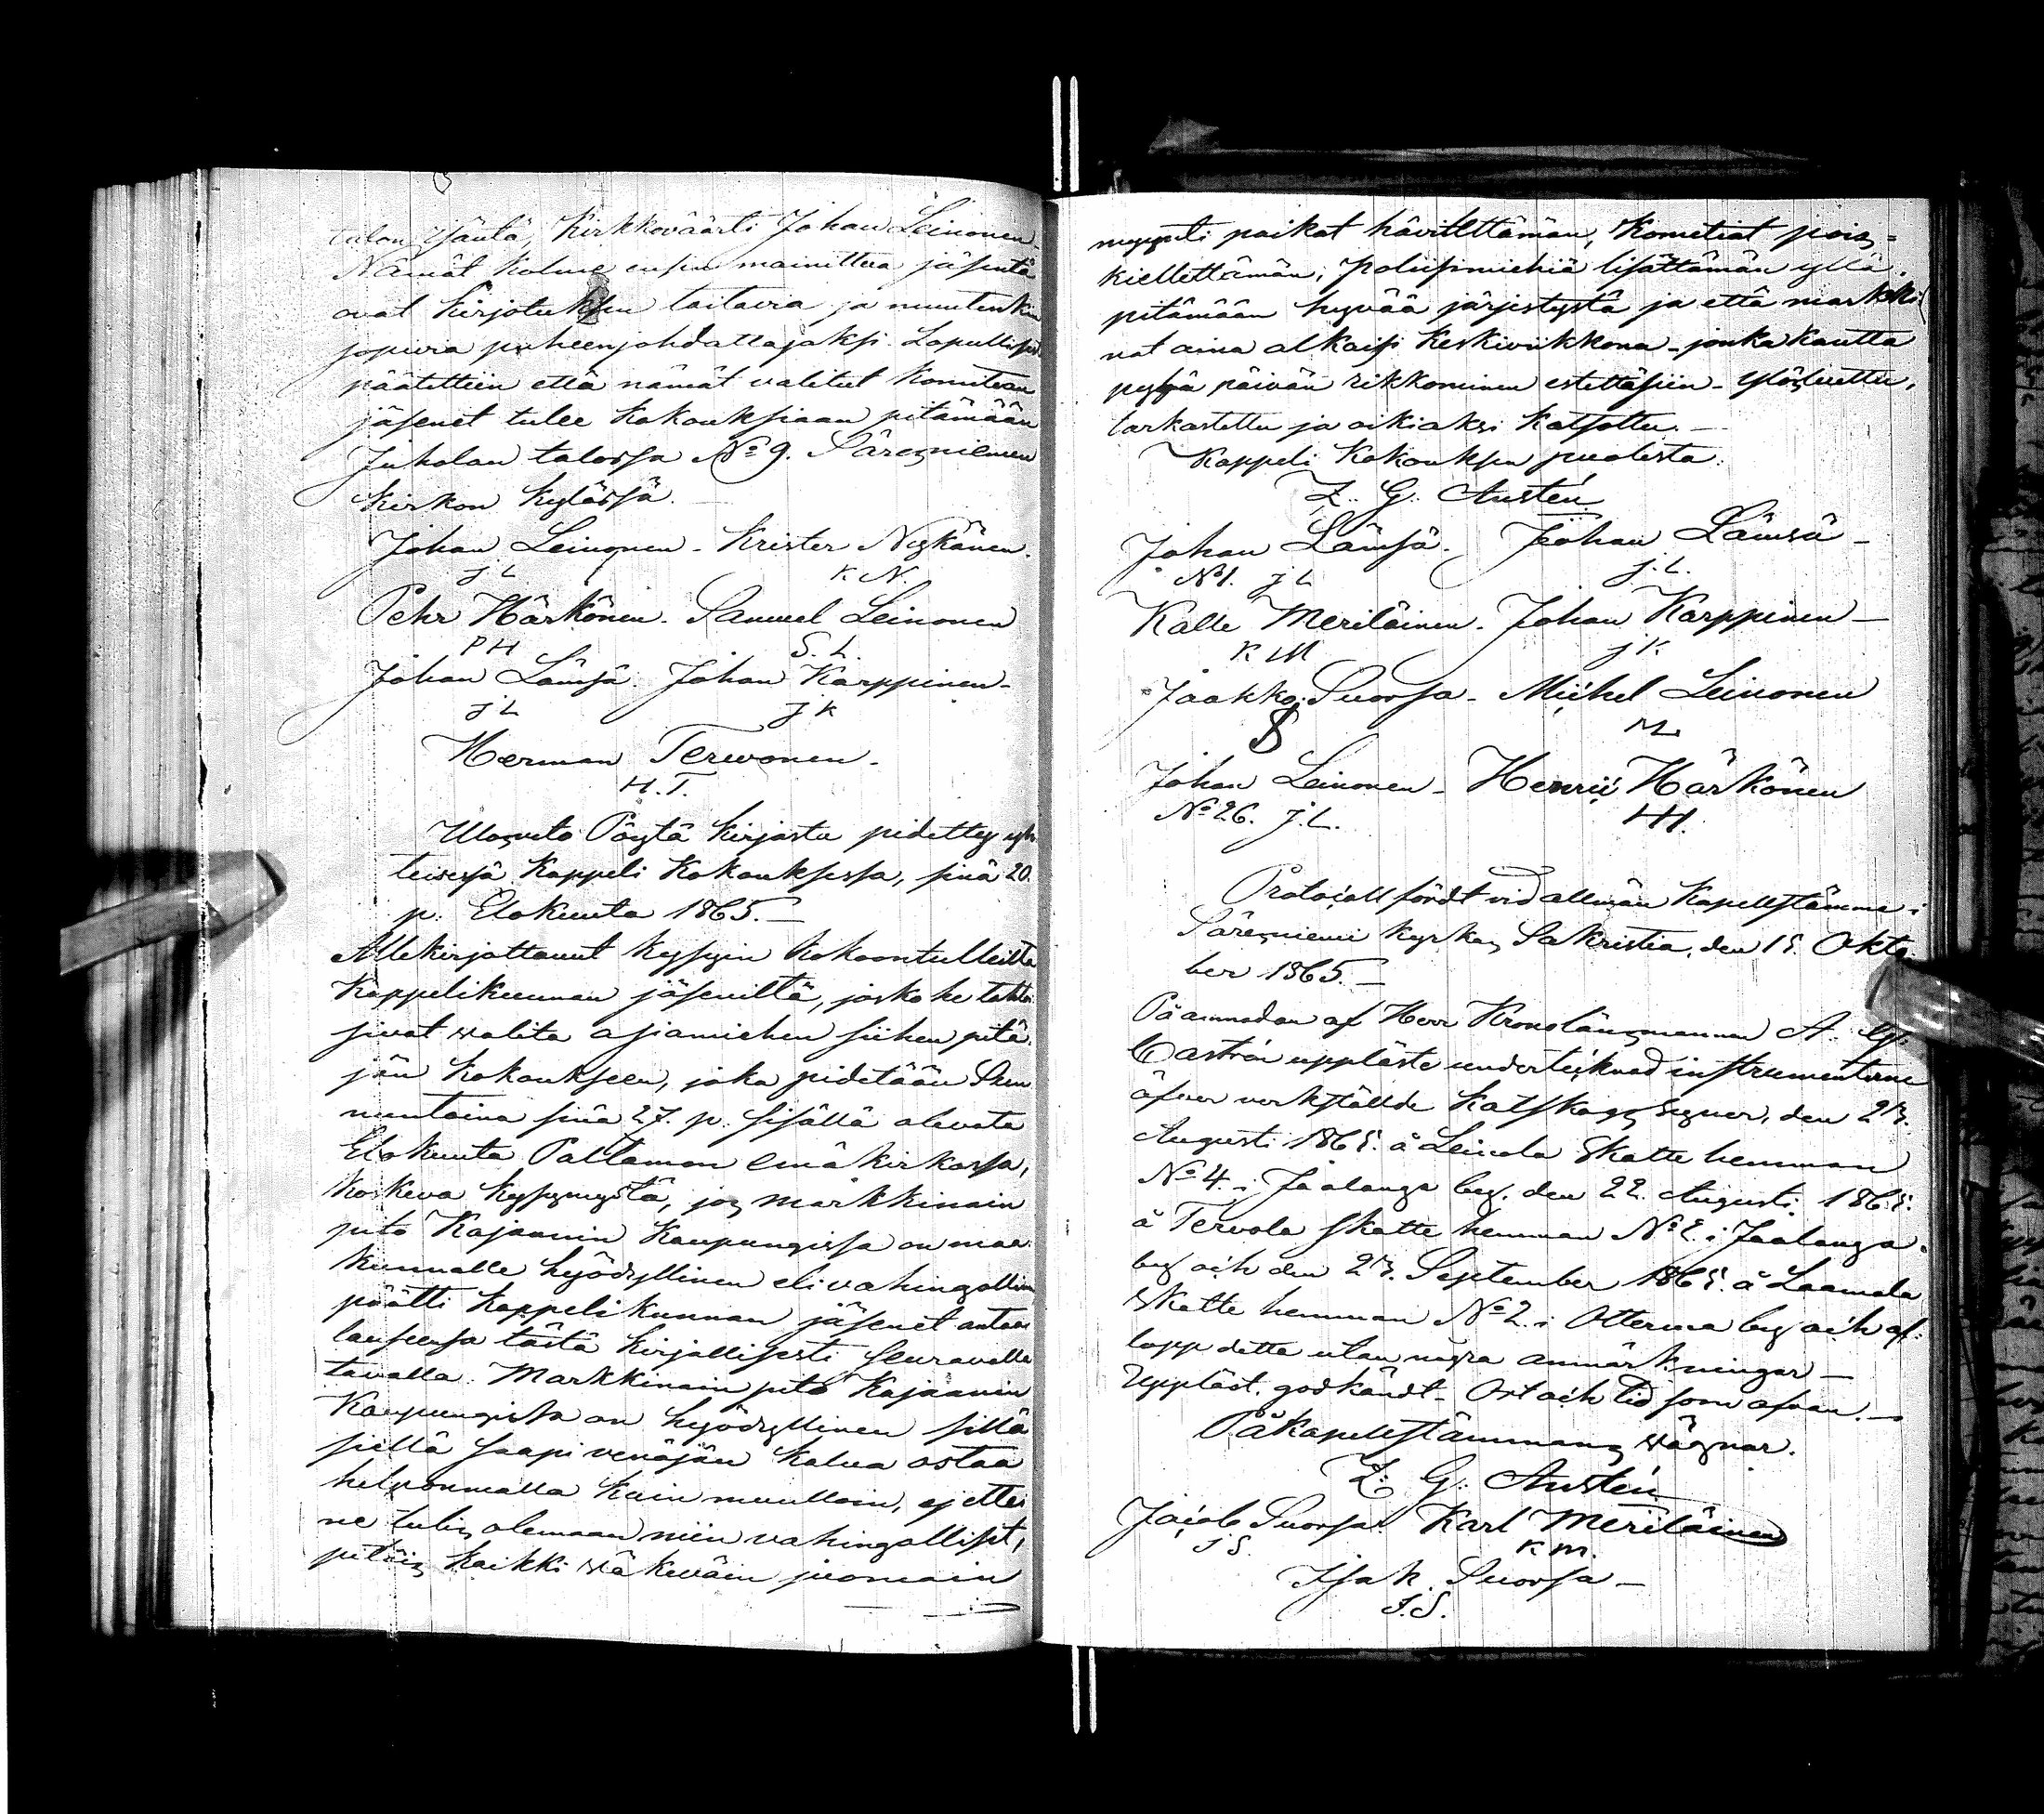 talon isäntä, Kirkkoväärti Johan Leinonen.
Nämät kolme ensin mainittua jäsentä
ovat kirjotuksen taitavia ja muutenkin
sopivia puheenjohdattajaksi. Lopullisesti
päätettiin että nämät valitut Komitean
jäsenet tulee kokouksiaan pitämään
Juholan talossa No 9. Säresniemen
kirkon kylässä.
Johan Leinonen - Krister Niskänen.
J L K. N.
Pehr Härkönen. Samuel Leinonen
P H S. L.
Johan Lämsä. Johan Karppinen -
J L J K
Herman Terwonen -
H. T.
Ulosveto Pöytä kirjasta pidetty yh-
teisessä Kappeli Kokouksessa, sinä 20.
p. Elokuuta 1865. -
Allekirjottanut kysyin kokoontulleilta
Kappelikunnan jäseniltä, josko he tahto
sivat valita asiamiehen siihen pitä
jän kokoukseen, joka pidetään Sun
nuntaina sinä 27. p. sisällä olevata
Elokuuta Paltamon emäkirkossa,
koskeva kysymystä, jos markkinain
pito Kajaanin Kaupungissa on maa
kunnalle hyödyllinen eli vahingollinen
päätti kappelikunnan jäsenet antaa
lauseensa tästä kirjallisesti seuravalla
tavalla. Markkinain pito Kajaanin
Kaupungissa on hyödyllinen sillä
siellä saapi venäjän kalua ostaa
helpommalla kuin muulloin, ej ettei
ne tulis olemaan niin vahingolliset,
pitäis kaikki väkeväin juomain
myynti paikat hävitettämän, Kometiat pois=
kiellettämän, poliisimiehiä lisättämän yllä
pitämään hyvää järjestystä ja että markki
nat aina alkaisi keskiviikkona - jonka kautta
pyhä päivän rikkominen estettäisiin - Ylösluettu,
tarkastettu ja oikiaksi katsottu. -
Kappeli Kokouksen puolesta:
Z. G. Austén
Johan Lämsä. Johan Lämsä -
No 1. J L J. L.
Kalle Meriläinen. Johan Karppinen -
K M J K
Jaakko Suorsa - Michel Leinonen
S M L
Johan Leinonen - Henric Härkönen
No 26. J. L. H H.
Protocoll fördt vid allmän Kapellstämma i
Säresniemi kyrkas Sakristia, den 15. Okto
ber 1865. -
På anmodan af Herr Kronolänsmannen A.
Castrén upplästes undertecknad instrumenterne
öfver verkställde Katskogs syner, den 23.
Augusti 1865. å Leinola Skatte hemman
No 4. i Jaalanga by. den 22. Augusti 1865.
å Tervola skatte hemman No 2. i Jaalanga
by och den 23. September 1865. å Laamala
skatte hemman No 2. i Otterma by och af=
lopp detta utan några anmärkningar -
Uppläst. godkändt - Ort och tid som ofvan. -
På kapellstämmans vägnar.
Z. G. Austén
Jacob Suorsa. Karl Meriläinen
J S. K M.
Isak Suorsa -
I. S.